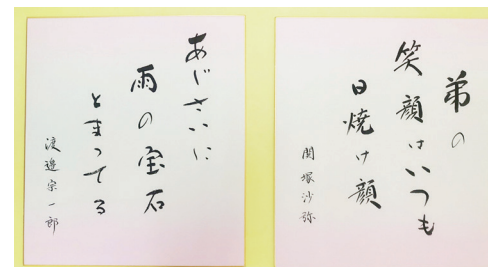 弟の
笑顔はいつも
日焼け顔
関塚沙弥
あじさいに
雨の宝石
とまってる
渡邊宗一郎